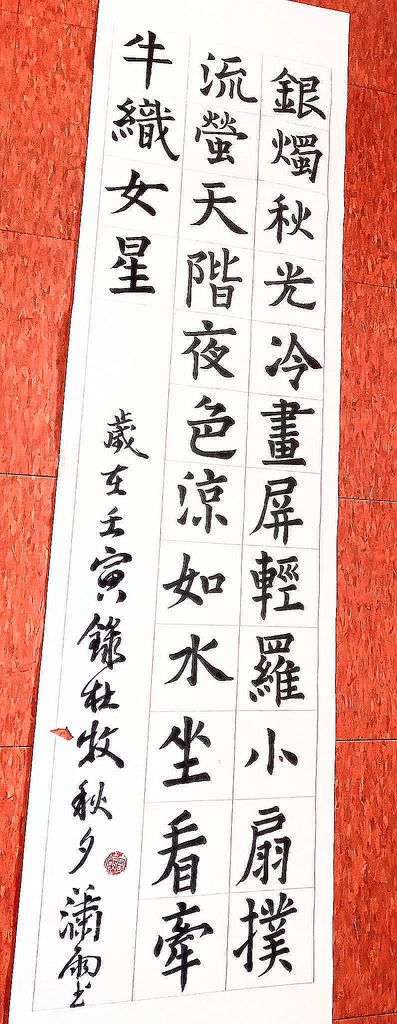 銀燭秋光冷畫屏輕羅小扇撲
流螢天階夜色涼如水坐看牽
牛織女星
歲在壬寅錄杜牧秋夕瀟雨书